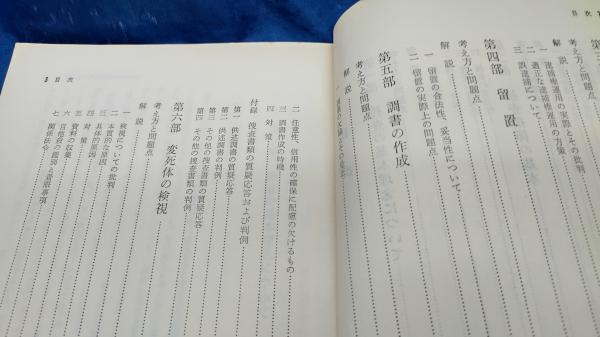 目次
一 逮捕権運用の実際とその批判
二 適正な逮捕権運用の方策
三 誤逮捕について
第四部 留置
考え方と問題点
解説
一 留置の合法性、妥当性について
二 留置の実際上の問題点
第五部 調書の作成
考え方と問題点
解説
二 任意性、信用性の確保に配慮の欠けるもの
三 調書作成の時機
四 対策
付録 捜査書類の質疑応答および判例
第一 供述調書の質疑応答
第二 供述調書の判例
第三 その他の捜査書類の質疑応答
第四 その他の捜査書類の判例
第六部 変死体の検視
考え方と問題点
解説
一 検視についての批判
二 本質的な原因
三 具体的原因
四 対策
五 資料の収集
六 自他殺の鑑別と着眼事項
七 関係法令
目次